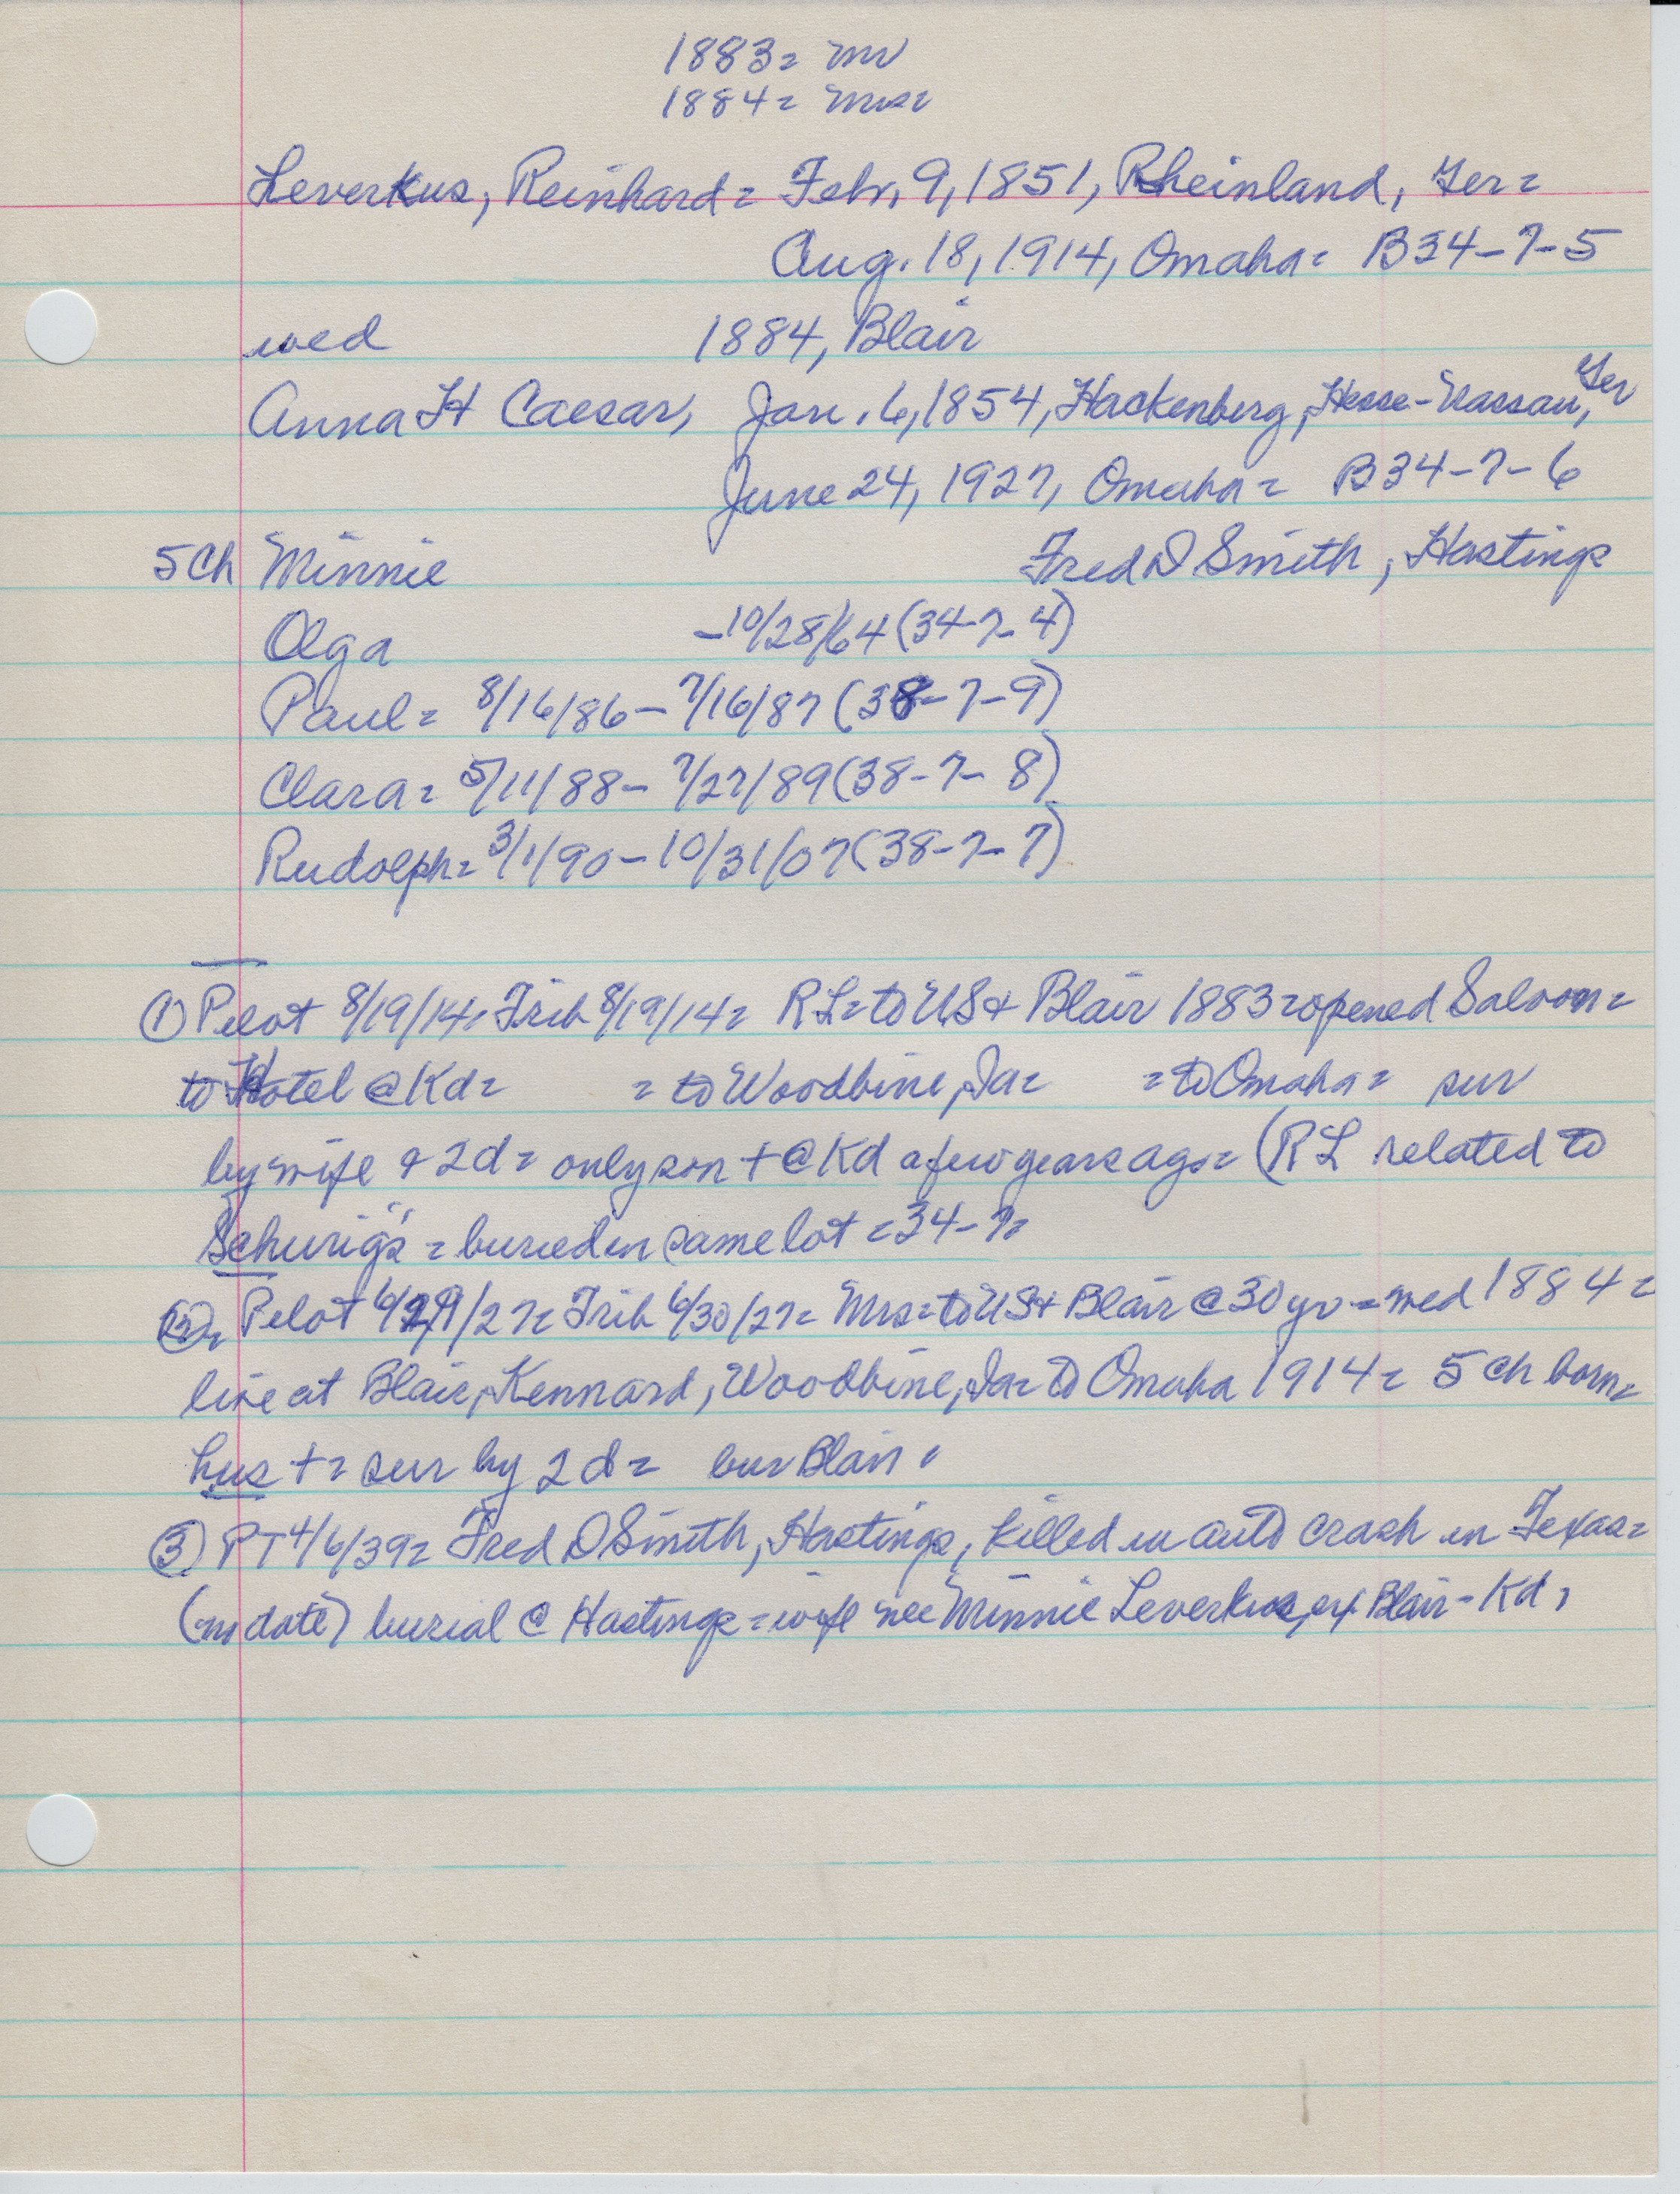 1883= Mr
1884= Mrs=
Leverkus, Reinhard= Febr, 9, 1851, Rheinland, Ger=
Aug. 18, 1914, Omaha= B34-7-5
wed 1884, Blair
Anna H Caesar, Jan. 6, 1854, Hackenberg, Hesse-Nassau, Ger
June 24, 1927, Omaha= B34-7-6
5 Ch Minnie Fred D Smith, Hastings
Olga -10/28/64 (34-7-4)
Paul= 8/16/86- 7/16/87 (38-7-9)
Clara= 5/11/88- 7/27/89 (38-7-8)
Rudolph= 3/1/90- 10/31/07 (38-7-7)
① Pilot 8/19/14, Trib 8/19/14= RL= to US + Blair 1883= opened Saloon=
to Hotel @ Kd= = to Woodbine, Ia= = to Omaha= sur
by wife & 2d= only son + @ Kd a few years ago= (RL related to
Schurigs = buried in same lot = 34-7=
②= Pilot 6/29/27= Trib 6/30/27= Mrs= to US + Blair @ 30 yr = wed 1884=
live at Blair, Kennard, Woodbine, Ia= to Omaha 1914= 5 ch born=
hus += sur by 2 d= bur Blair.
③ PT 4/6/39= Fred D Smith, Hastings, killed in auto crash in Texas=
(no date) burial @ Hastings = wife nee Minnie Leverkus, of Blair-Kd,